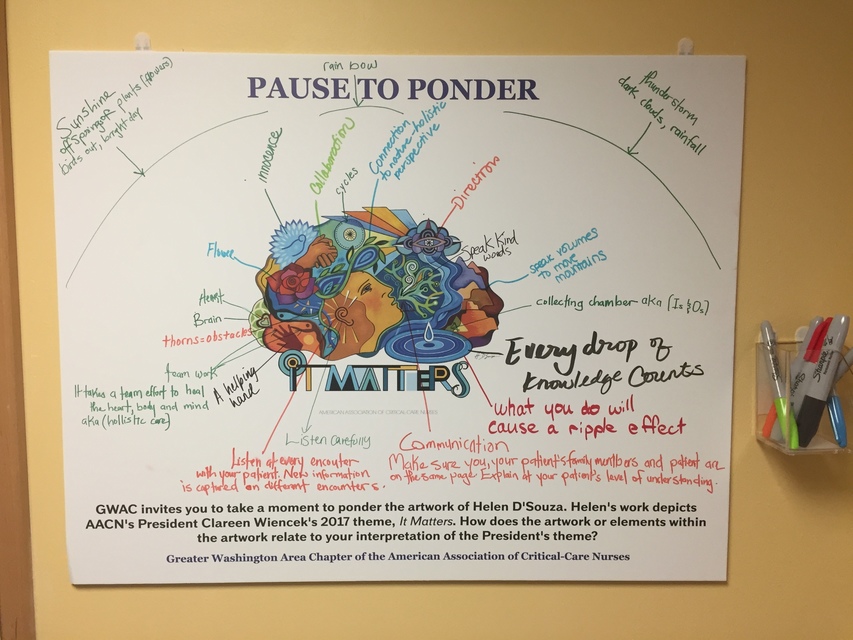 rain bow
PAUSE TO PONDER
Sunshine
offspring of plants (flowers)
birds out, bright day
thunderstorm
dark clouds, rainfall
innocence
Collaboration
cycles
Connection
to nature-holistic
perspective
Direction
Speak Kind
words
speak volumes
to move
mountains
Heart
Brain
thorns=obstacles
collecting chamber aka (I's & O's)
team work
It takes a team effort to heal
the heart, body and mind
aka (hollistic care)
A helping
hand
Every drop of
knowledge Counts
IT MATTERS
what you do will
cause a ripple effect
AMERICAN ASSOCIATION OF CRITICAL-CARE NURSES
Listen Carefully
Listen at every encouter
with your patient. New information
is captured on different encounters.
Communication
Make sure you, your patient's family members and patient are
on the same page Explain at your patient's level of understanding.
GWAC invites you to take a moment to ponder the artwork of Helen D'Souza. Helen's work depicts
AACN's President Clareen Wiencek's 2017 theme, It Matters. How does the artwork or elements within
the artwork relate to your interpretation of the President's theme?
Greater Washington Area Chapter of the American Association of Critical-Care Nurses
Sharpie